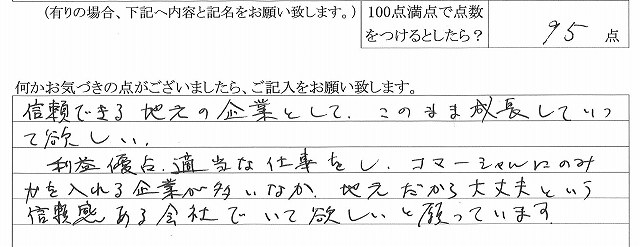 (有りの場合、下記へ内容と記名をお願い致します。)
100点満点で点数
をつけるとしたら?
95 点
何かお気づきの点がございましたら、ご記入をお願い致します。
信頼できる地元の企業として、このまま成長していっ
て欲しい。
利益優占、適当な仕事をし、コマーシャルにのみ
力を入れる企業が多いなか、地元だから大丈夫という
信頼感ある会社でいて欲しいと願っています